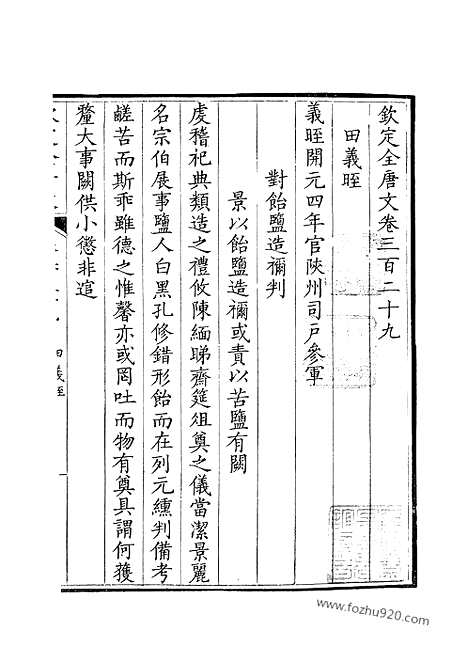 欽定全唐文卷三百二十九
田義晊
義晊開元四年官陝州司戶參軍
對飴鹽造禰判
景以飴鹽造禰或責以苦鹽有闕
虔稽祀典類造之禮攸陳緬睇齋筵俎奠之儀當潔景麗
名宗伯展事鹽人白黑孔修錯形飴而在列元纁判備考
鹺苦而斯乖雖德之惟馨亦或罔吐而物有奠具謂何獲
釐大事闕供小懲非逭
田義晊
www.fozhu920.com